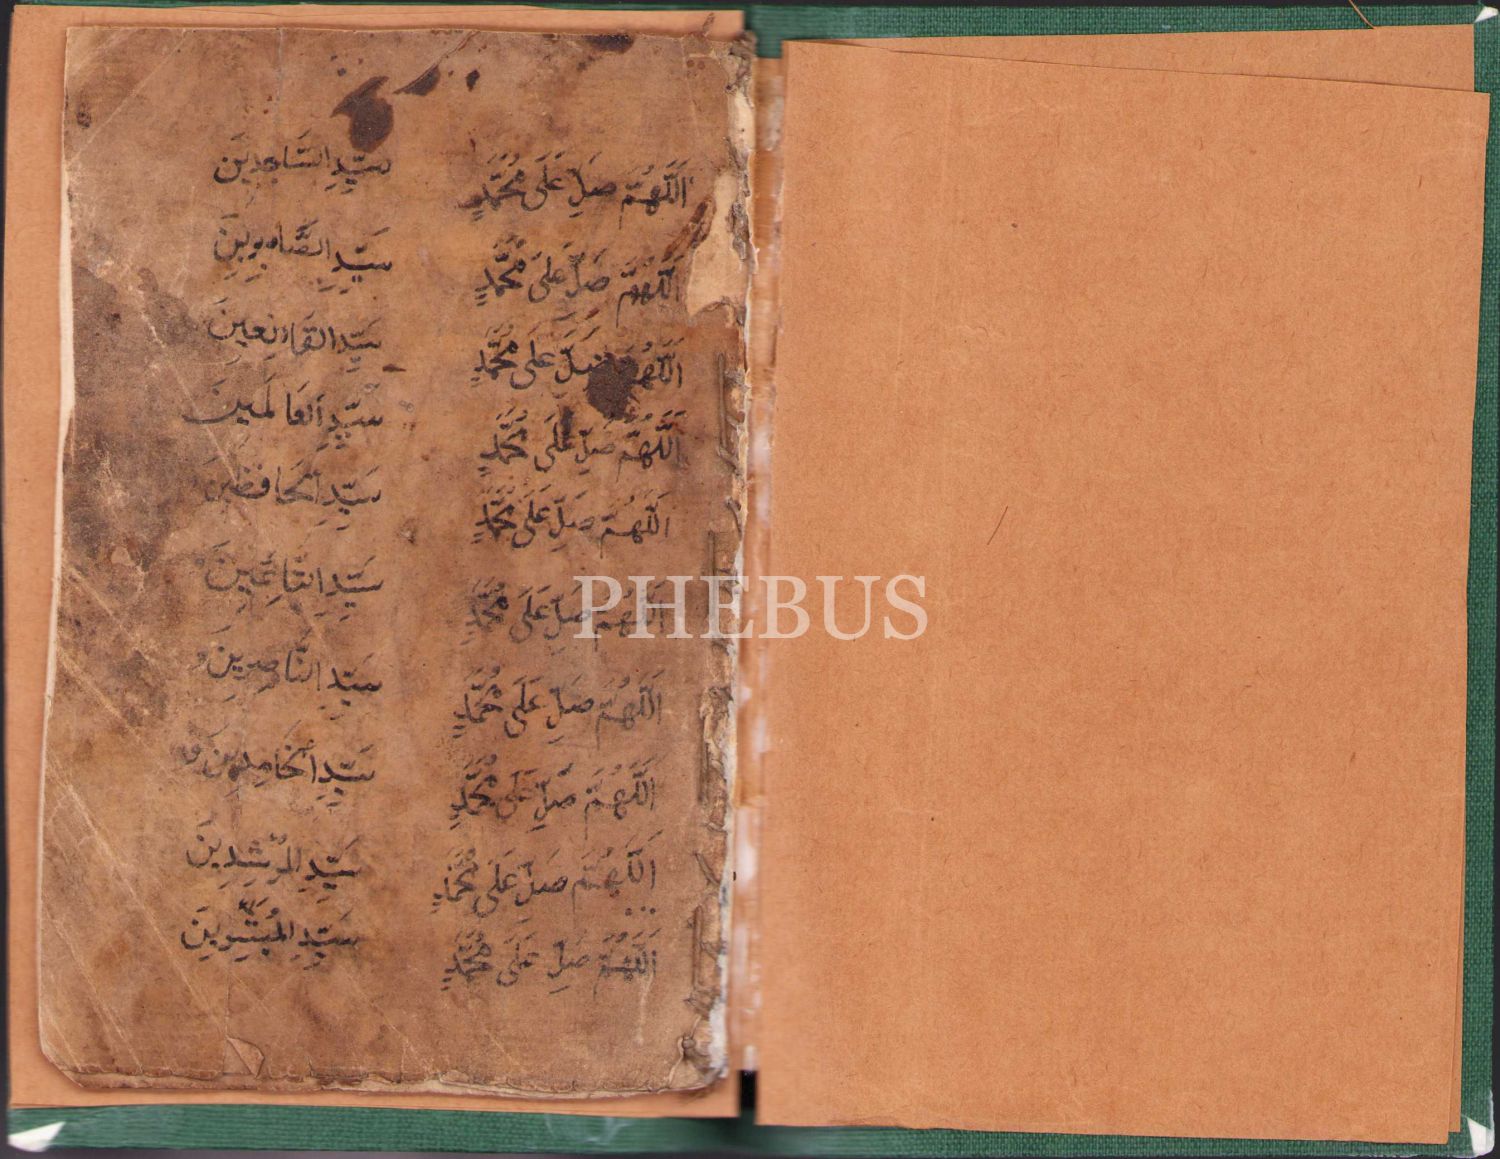 اَللّٰهُمَّ صَلِّ عَلَى مُحَمَّدٍ سَيِّدِ السَّاجِدِينَ
اَللّٰهُمَّ صَلِّ عَلَى مُحَمَّدٍ سَيِّدِ الصَّابِرِينَ
اَللّٰهُمَّ صَلِّ عَلَى مُحَمَّدٍ سَيِّدِ
اَللّٰهُمَّ صَلِّ عَلَى مُحَمَّدٍ سَيِّدِ الْعَالَمِينَ
اَللّٰهُمَّ صَلِّ عَلَى مُحَمَّدٍ سَيِّدِ الْحَافِظِينَ
اَللّٰهُمَّ صَلِّ عَلَى مُحَمَّدٍ سَيِّدِ
PHEBUS
اَللّٰهُمَّ صَلِّ عَلَى مُحَمَّدٍ سَيِّدِ النَّاصِرِينَ
اَللّٰهُمَّ صَلِّ عَلَى مُحَمَّدٍ سَيِّدِ الْحَامِدِينَ
اَللّٰهُمَّ صَلِّ عَلَى مُحَمَّدٍ سَيِّدِ الْمُرْشِدِينَ
اَللّٰهُمَّ صَلِّ عَلَى مُحَمَّدٍ سَيِّدِ الْمُبَشِّرِينَ